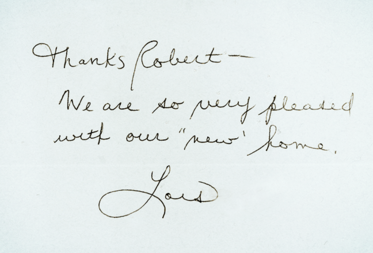 Thanks Robert—
We are so very pleased
with our "new' home.
Lois